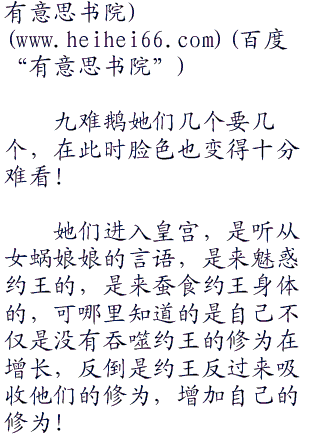 有意思书院)
(www.heihei66.com)(百度
“有意思书院”)
九难鹅她们几个要几
个，在此时脸色也变得十分
难看！
她们进入皇宫，是听从
女蜗娘娘的言语，是来魅惑
约王的，是来蚕食约王身体
的，可哪里知道的是自己不
仅是没有吞噬约王的修为在
增长，反倒是约王反过来吸
收他们的修为，增加自己的
修为！